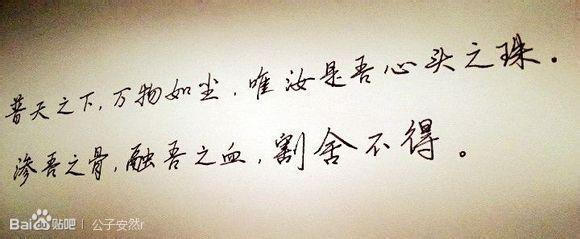 普天之下，万物如尘，唯汝是吾心头之珠。
渗吾之骨，融吾之血，割舍不得。
Bai贴吧 | 公子安然r